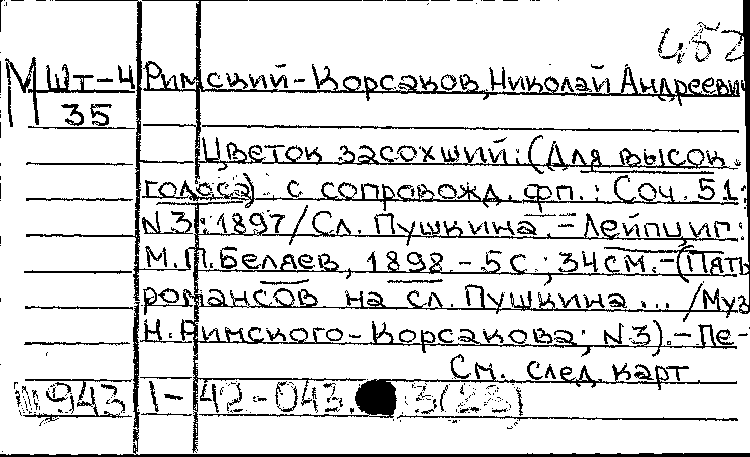 452
М Шт-4 Римский-Корсаков, Николай Андреевич
35
Цветок засохший: (Для высок.
голоса) с сопровожд. фп.: Соч. 51:
N 3: 1897/Сл. Пушкина. - Лейпциг:
М.П. Беляев, 1898. - 5 с.; 34 см. - (Пять
романсов на сл. Пушкина... /Муз
Н. Римского-Корсакова; N 3). - Пе-
См. след. карт
Ш 943 1-42-043. 3(23)